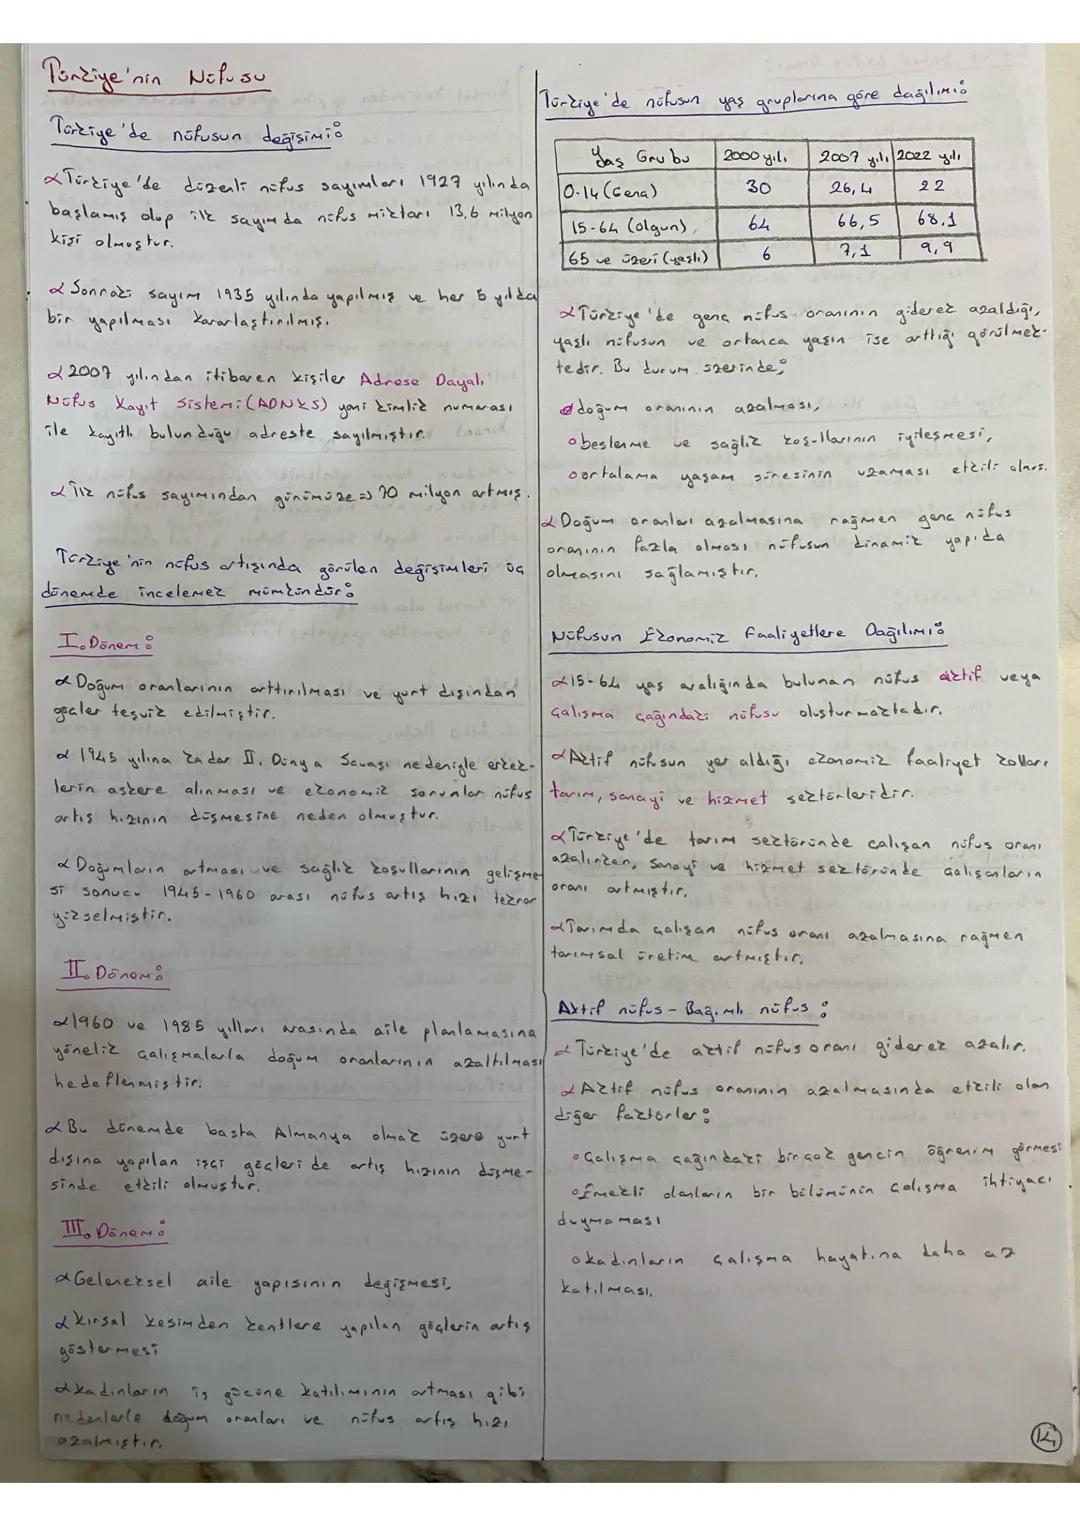 Türkiye'nin Nüfusu
Türkiye'de nüfusun değişimi:
Türkiye'de düzenli nüfus sayımları 1927 yılında
başlamış olup ilk sayımda nüfus miktarı 13,6 milyon
kişi olmuştur.
Sonraki sayım 1935 yılında yapılmış ve her 5 yılda
bir yapılması kararlaştırılmış.
2007 yılından itibaren kişiler Adrese Dayalı
Nüfus Kayıt Sistemi (ADNKS) yani kimlik numarası
ile kayıtlı bulunduğu adreste sayılmıştır.
İlk nüfus sayımından günümüze => 70 milyon artmış.
Türkiye'nin nüfus artışında görülen değişimleri üç
dönemde incelemek mümkündür:
I. Dönem:
Doğum oranlarının arttırılması ve yurt dışından
göçler teşvik edilmiştir.
1945 yılına kadar II. Dünya Savaşı nedeniyle erkek-
lerin askere alınması ve ekonomik sorunlar nüfus
artış hızının düşmesine neden olmuştur.
Doğumların artması ve sağlık koşullarının gelişme
si sonucu 1945-1960 arası nüfus artış hızı tekrar
yükselmiştir.
II. Dönem:
1960 ve 1985 yılları arasında aile planlamasına
yönelik çalışmalarla doğum oranlarının azaltılması
hedeflenmiştir.
Bu dönemde başta Almanya olmak üzere yurt
dışına yapılan işçi göçleri de artış hızının düşme-
sinde etkili olmuştur.
III. Dönem:
Geleneksel aile yapısının değişmesi,
Kırsal kesimden kentlere yapılan göçlerin artış
göstermesi
Kadınların iş gücüne katılımının artması gibi
nedenlerle doğum oranları ve nüfus artış hızı
azalmıştır.
Türkiye'de nüfusun yaş gruplarına göre dağılımı:
Yaş Grubu 2000 yılı 2007 yılı 2022 yılı
0-14 (Genç) 30 26,4 22
15-64 (olgun) 64 66,5 68,1
65 ve üzeri (yaşlı) 6 7,1 9,9
Türkiye'de genç nüfus oranının giderek azaldığı,
yaşlı nüfusun ve ortanca yaşın ise arttığı görülmek-
tedir. Bu durum üzerinde;
doğum oranının azalması,
beslenme ve sağlık koşullarının iyileşmesi,
ortalama yaşam süresinin uzaması etkili olmuş.
Doğum oranları azalmasına rağmen genç nüfus
oranının fazla olması nüfusun dinamik yapıda
olmasını sağlamıştır.
Nüfusun Ekonomik Faaliyetlere Dağılımı:
15-64 yaş aralığında bulunan nüfus aktif veya
çalışma çağındaki nüfusu oluşturmaktadır.
Aktif nüfusun yer aldığı ekonomik faaliyet kolları
tarım, sanayi ve hizmet sektörleridir.
Türkiye'de tarım sektöründe çalışan nüfus oranı
azalırken, sanayi ve hizmet sektöründe çalışanların
oranı artmıştır.
Tarımda çalışan nüfus oranı azalmasına rağmen
tarımsal üretim artmıştır.
Aktif nüfus - Bağımlı nüfus:
Türkiye'de aktif nüfus oranı giderek azalır.
Aktif nüfus oranının azalmasında etkili olan
diğer faktörler:
Çalışma çağındaki birçok gencin öğrenim görmesi
Emekli olanların bir bölümünün çalışma ihtiyacı
duymaması
Kadınların çalışma hayatına daha az
katılması.